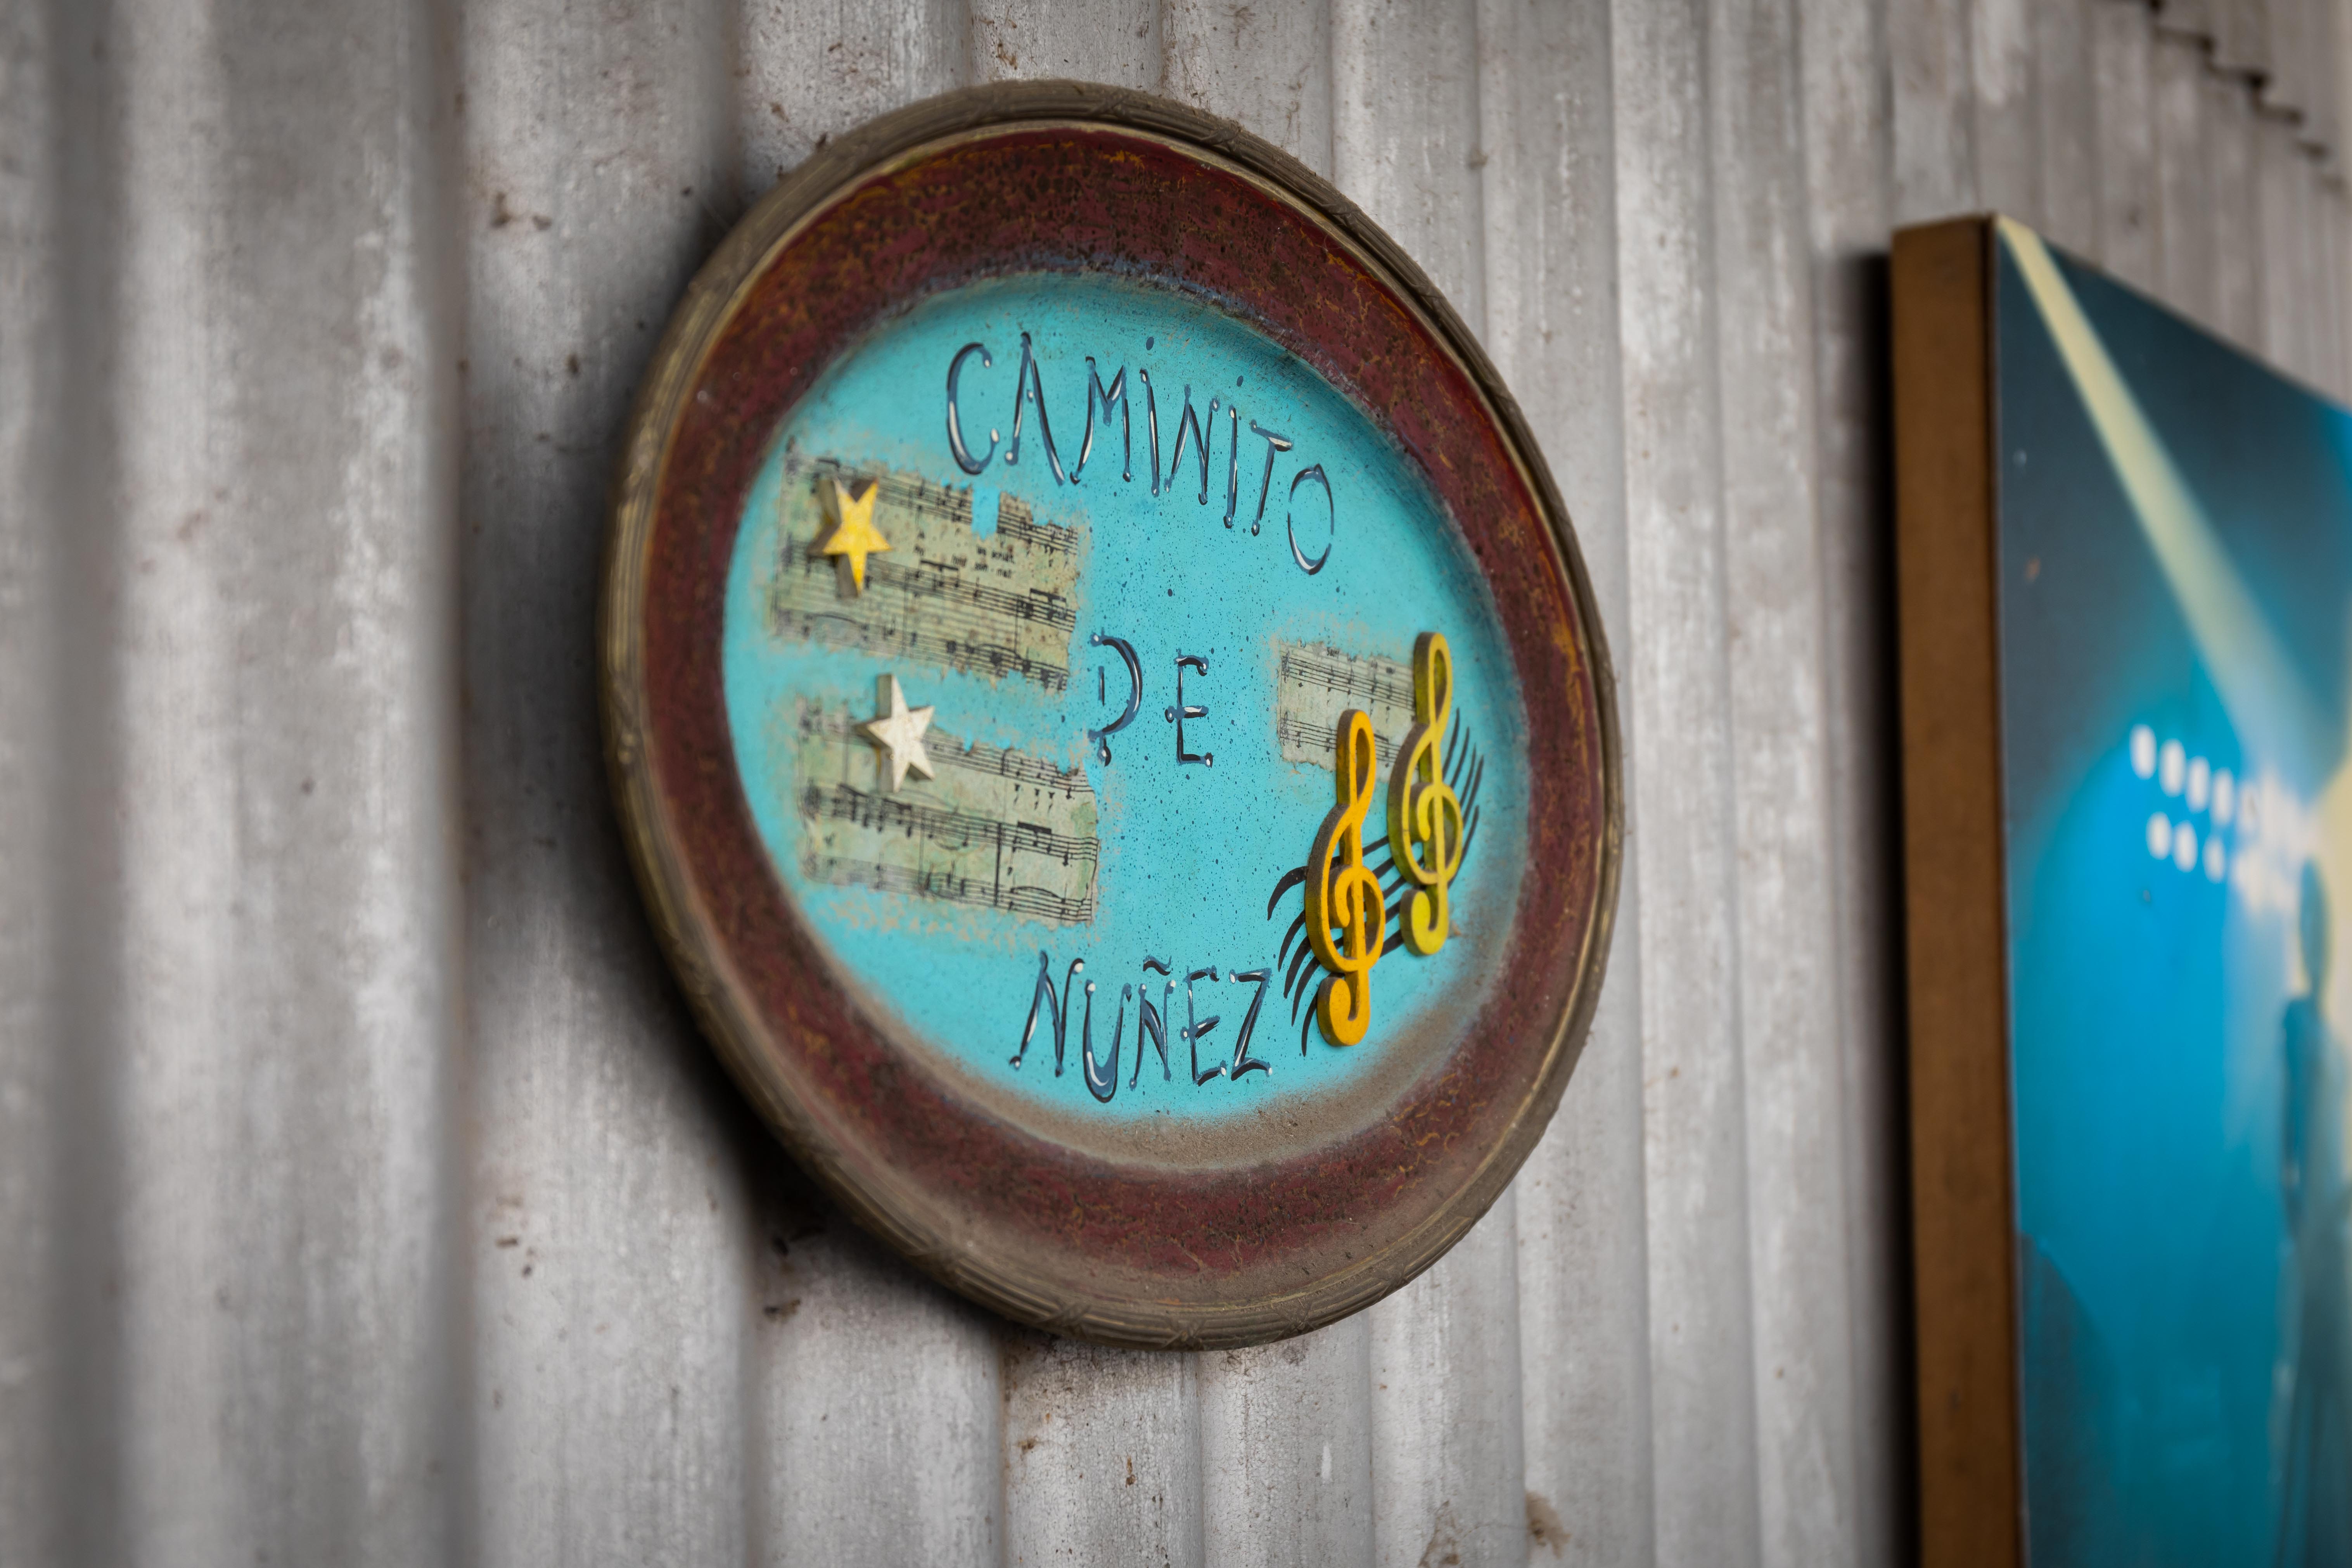 CAMINITO
DE
NUÑEZ